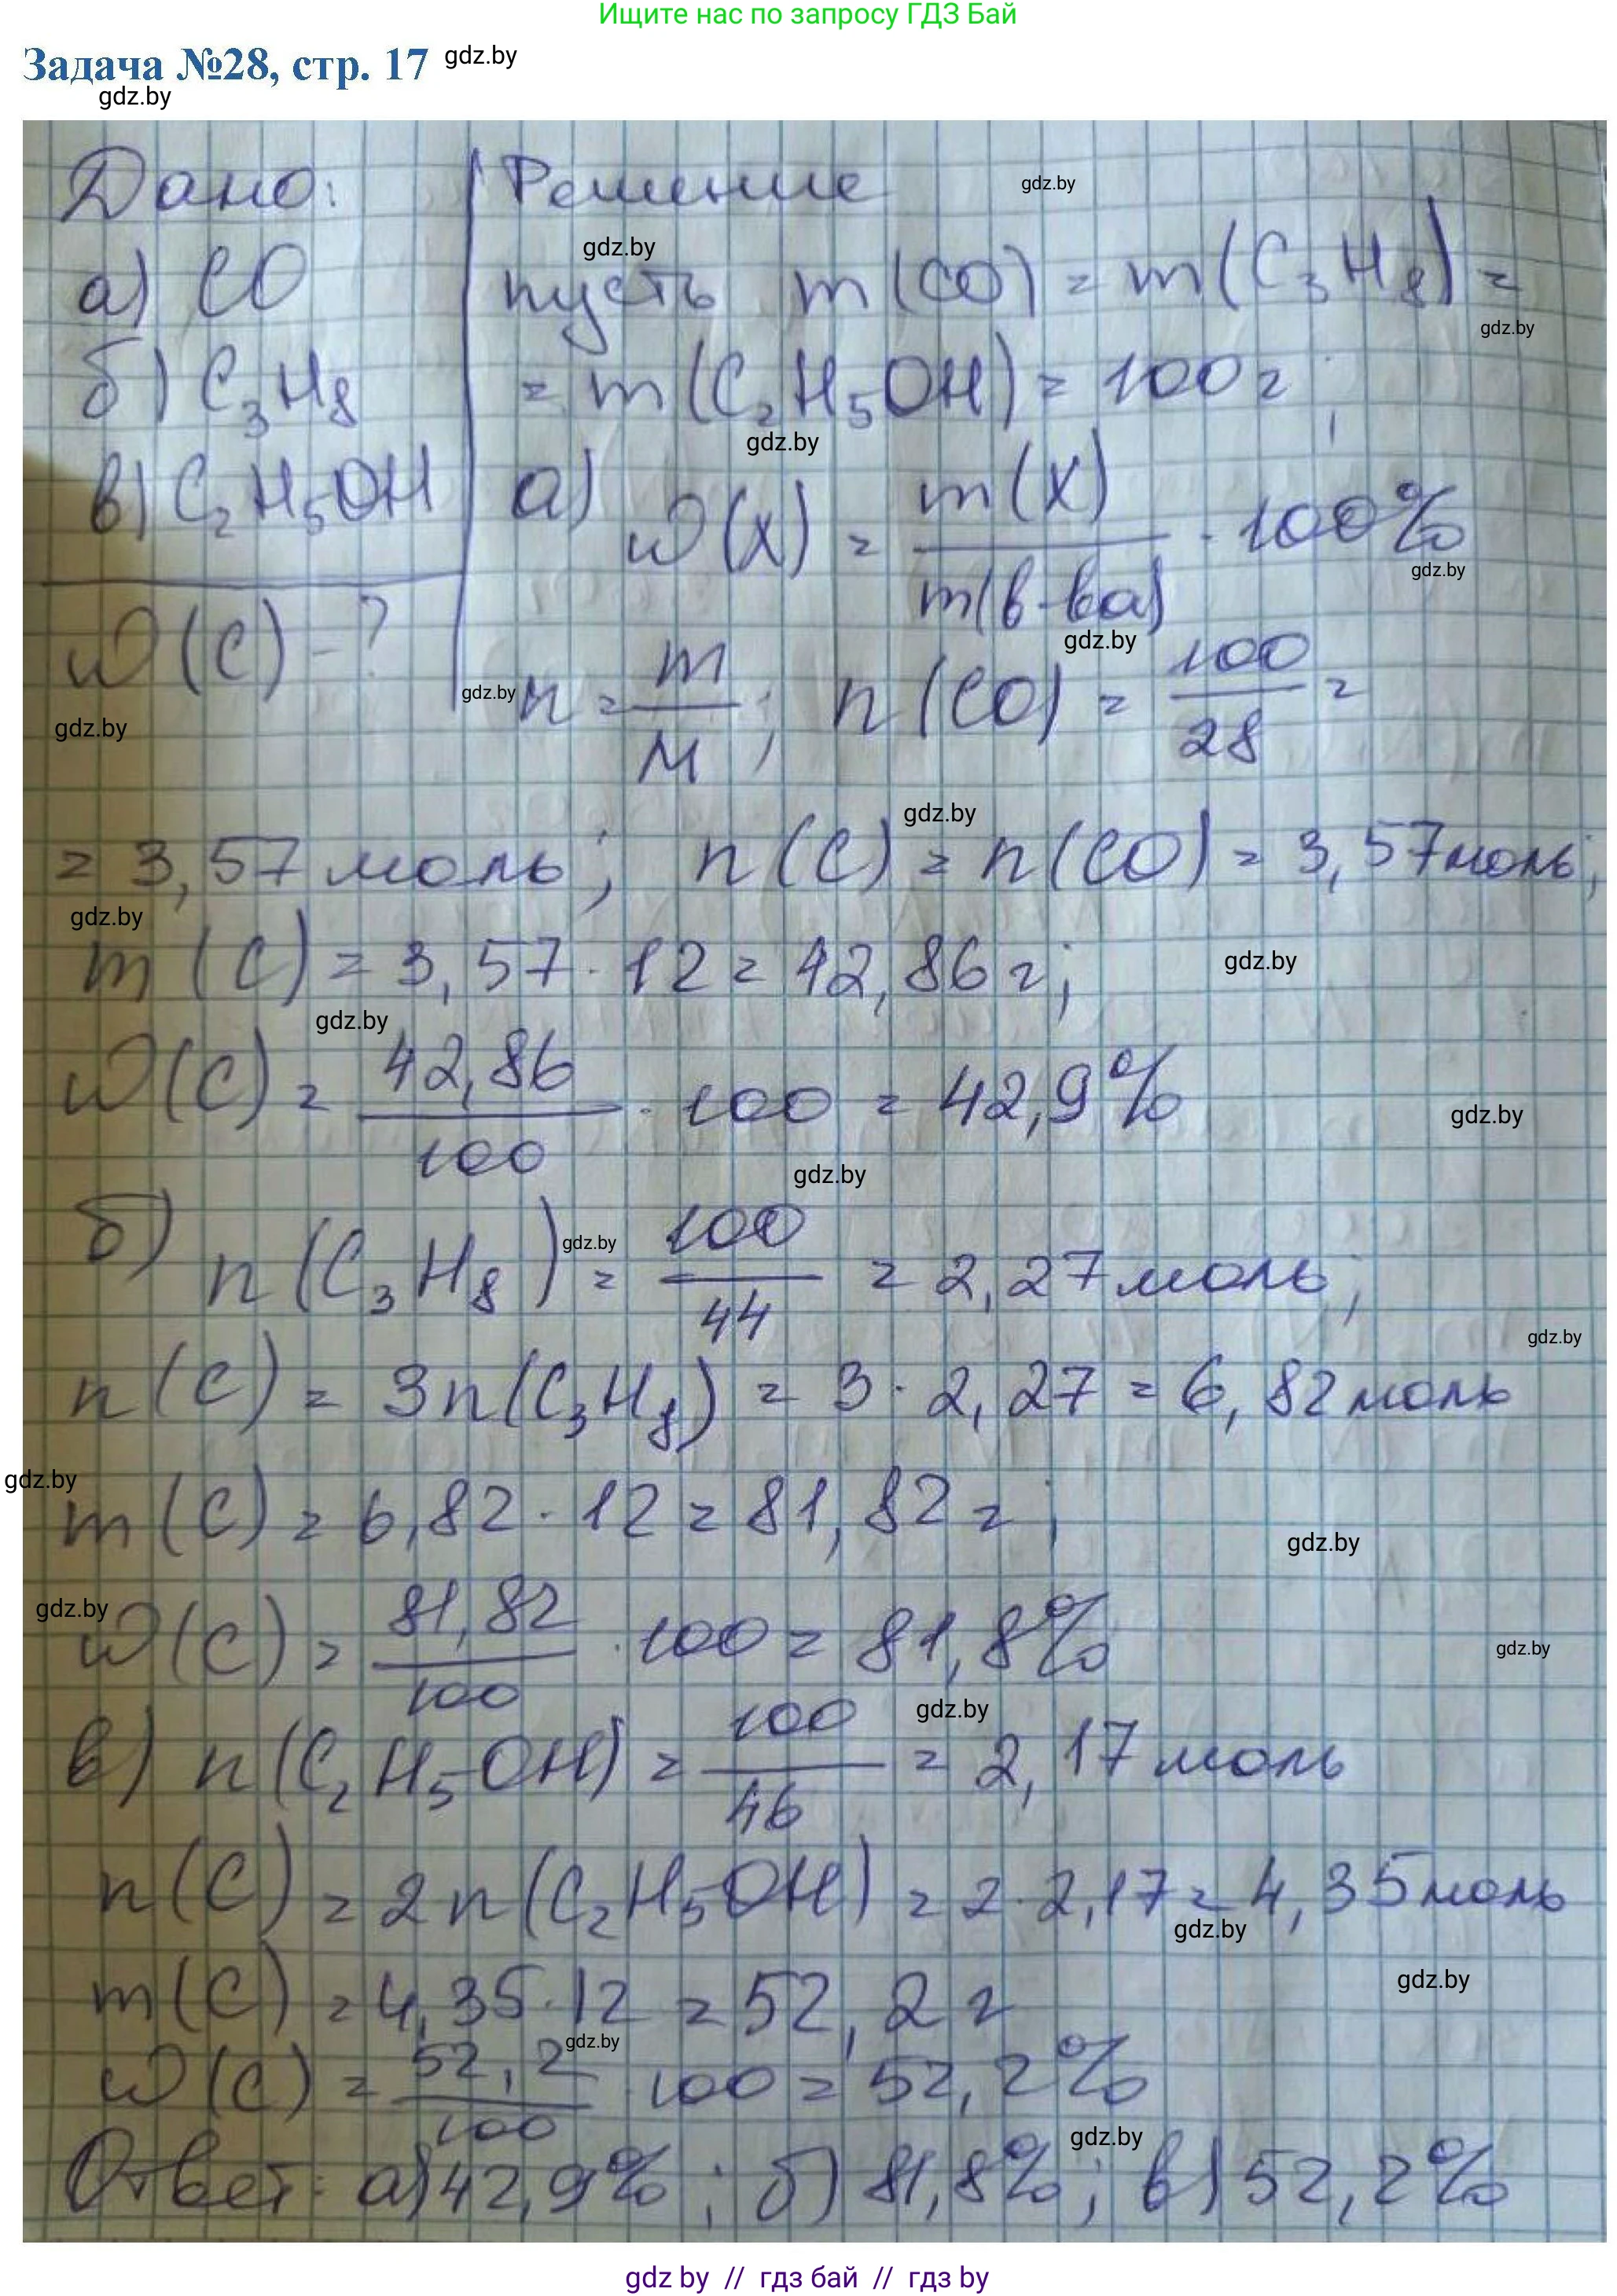 Ищите нас по запросу ГДЗ Бай
Задача №28, стр. 17 gdz.by
gdz.by
Дано: Решение gdz.by
gdz.by
а) CO пусть m(CO) = m(C₃H₈) =
gdz.by
б) C₃H₈ = m(C₂H₅OH) = 100г;
gdz.by
в) C₂H₅OH а) W(X) = m(X)/m(в-ва) · 100%
gdz.by
gdz.by
W(C) - ?
gdz.by n = m/M; n(CO) = 100/28 =
gdz.by
gdz.by
= 3,57 моль; n(C) = n(CO) = 3,57 моль;
gdz.by
m(C) = 3,57 · 12 = 42,86 г;
gdz.by
gdz.by
W(C) = 42,86/100 · 100 = 42,9%
gdz.by
gdz.by
б) n(C₃H₈) = 100/44 = 2,27 моль;
gdz.by
gdz.by
n(C) = 3n(C₃H₈) = 3 · 2,27 = 6,82 моль
gdz.by
m(C) = 6,82 · 12 = 81,82 г;
gdz.by
gdz.by
W(C) = 81,82/100 · 100 = 81,8%
gdz.by
gdz.by
в) n(C₂H₅OH) = 100/46 = 2,17 моль
n(C) = 2n(C₂H₅OH) = 2 · 2,17 = 4,35 моль
gdz.by
gdz.by
m(C) = 4,35 · 12 = 52,2 г
gdz.by
W(C) = 52,2/100 · 100 = 52,2%
gdz.by
Ответ: а) 42,9%; б) 81,8%; в) 52,2%
gdz by // гдз бай // гдз by